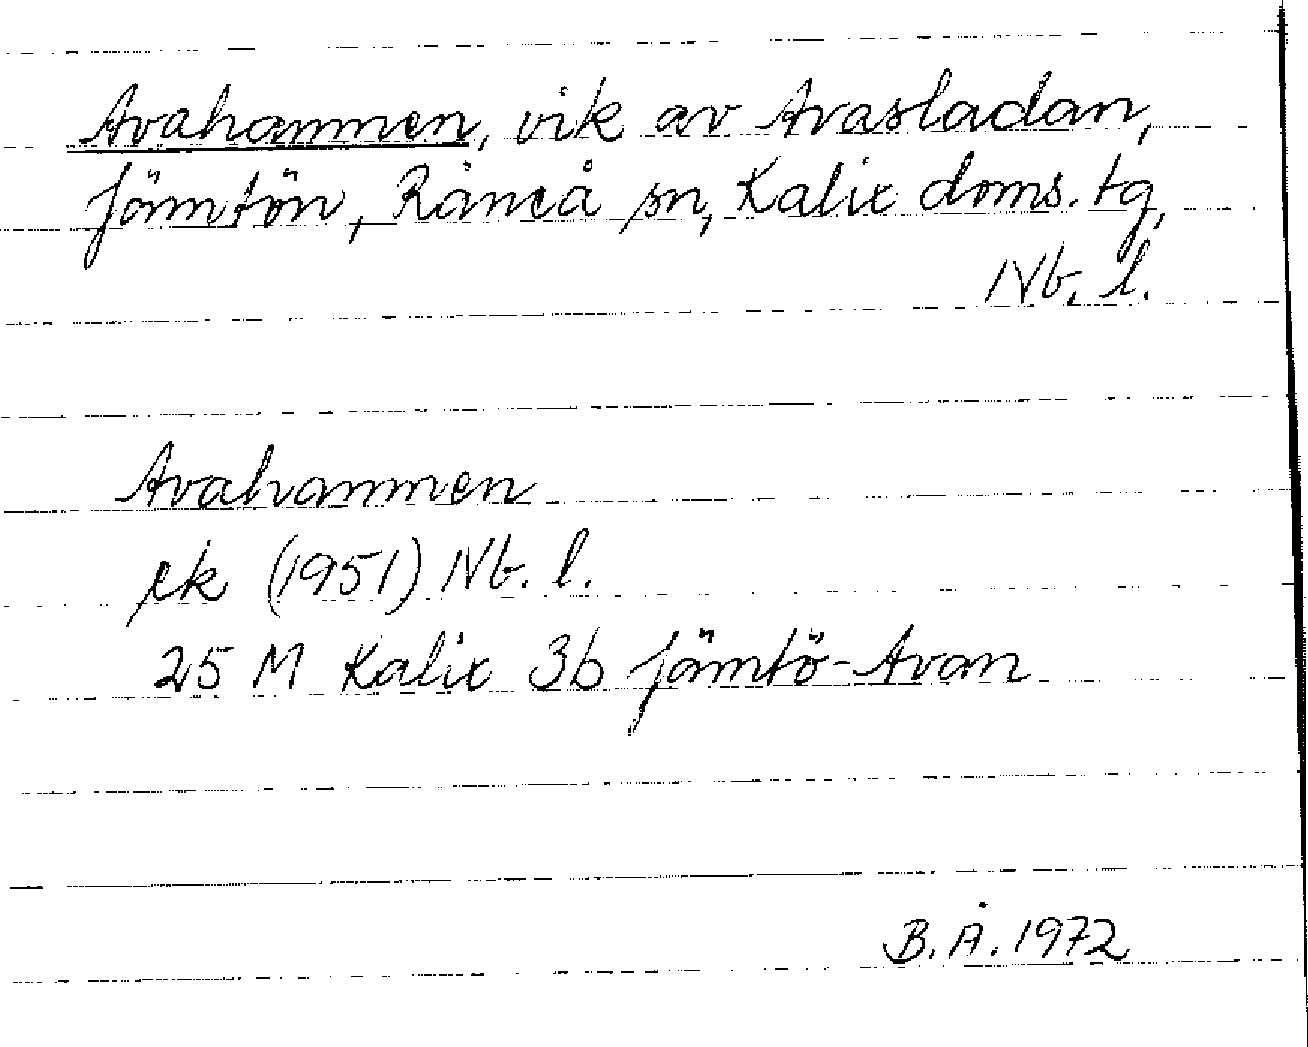 Avahamnen, vik av Avasladan,
Jämtön, Råneå sn, Kalix doms. tg,
Nb. l.
Avahamnen
ek (1951) Nb. l.
25 M Kalix 3b Jämtö-Avan
B. Å. 1972